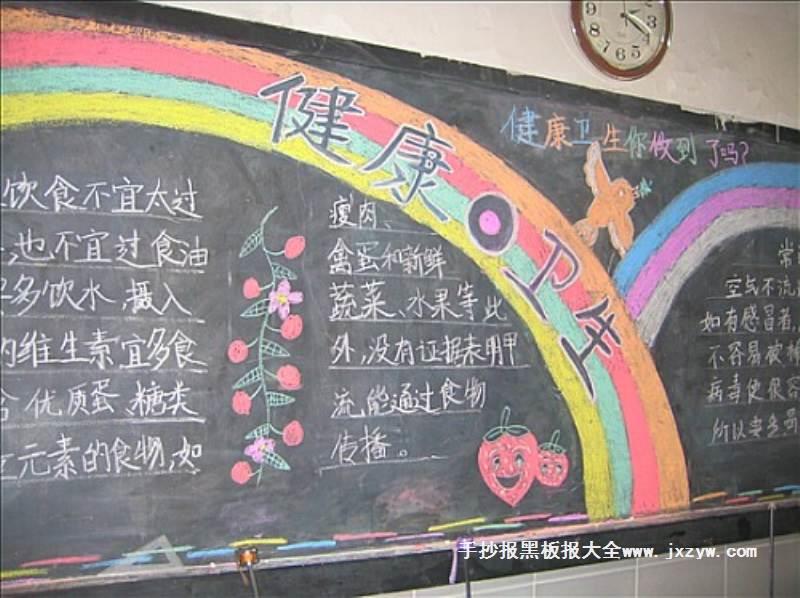 健康卫生
健康卫生你做到了吗?
饮食不宜太过
也不宜过食油
多饮水,摄入
维生素宜多食
优质蛋、糖类
元素的食物,如
瘦肉、
禽蛋和新鲜
蔬菜、水果等此
外,没有证据表明甲
流能通过食物
传播。
常
空气不流
如有感冒者,
不容易被
病毒便很容
所以要多
手抄报黑板报大全www.jxzyw.com